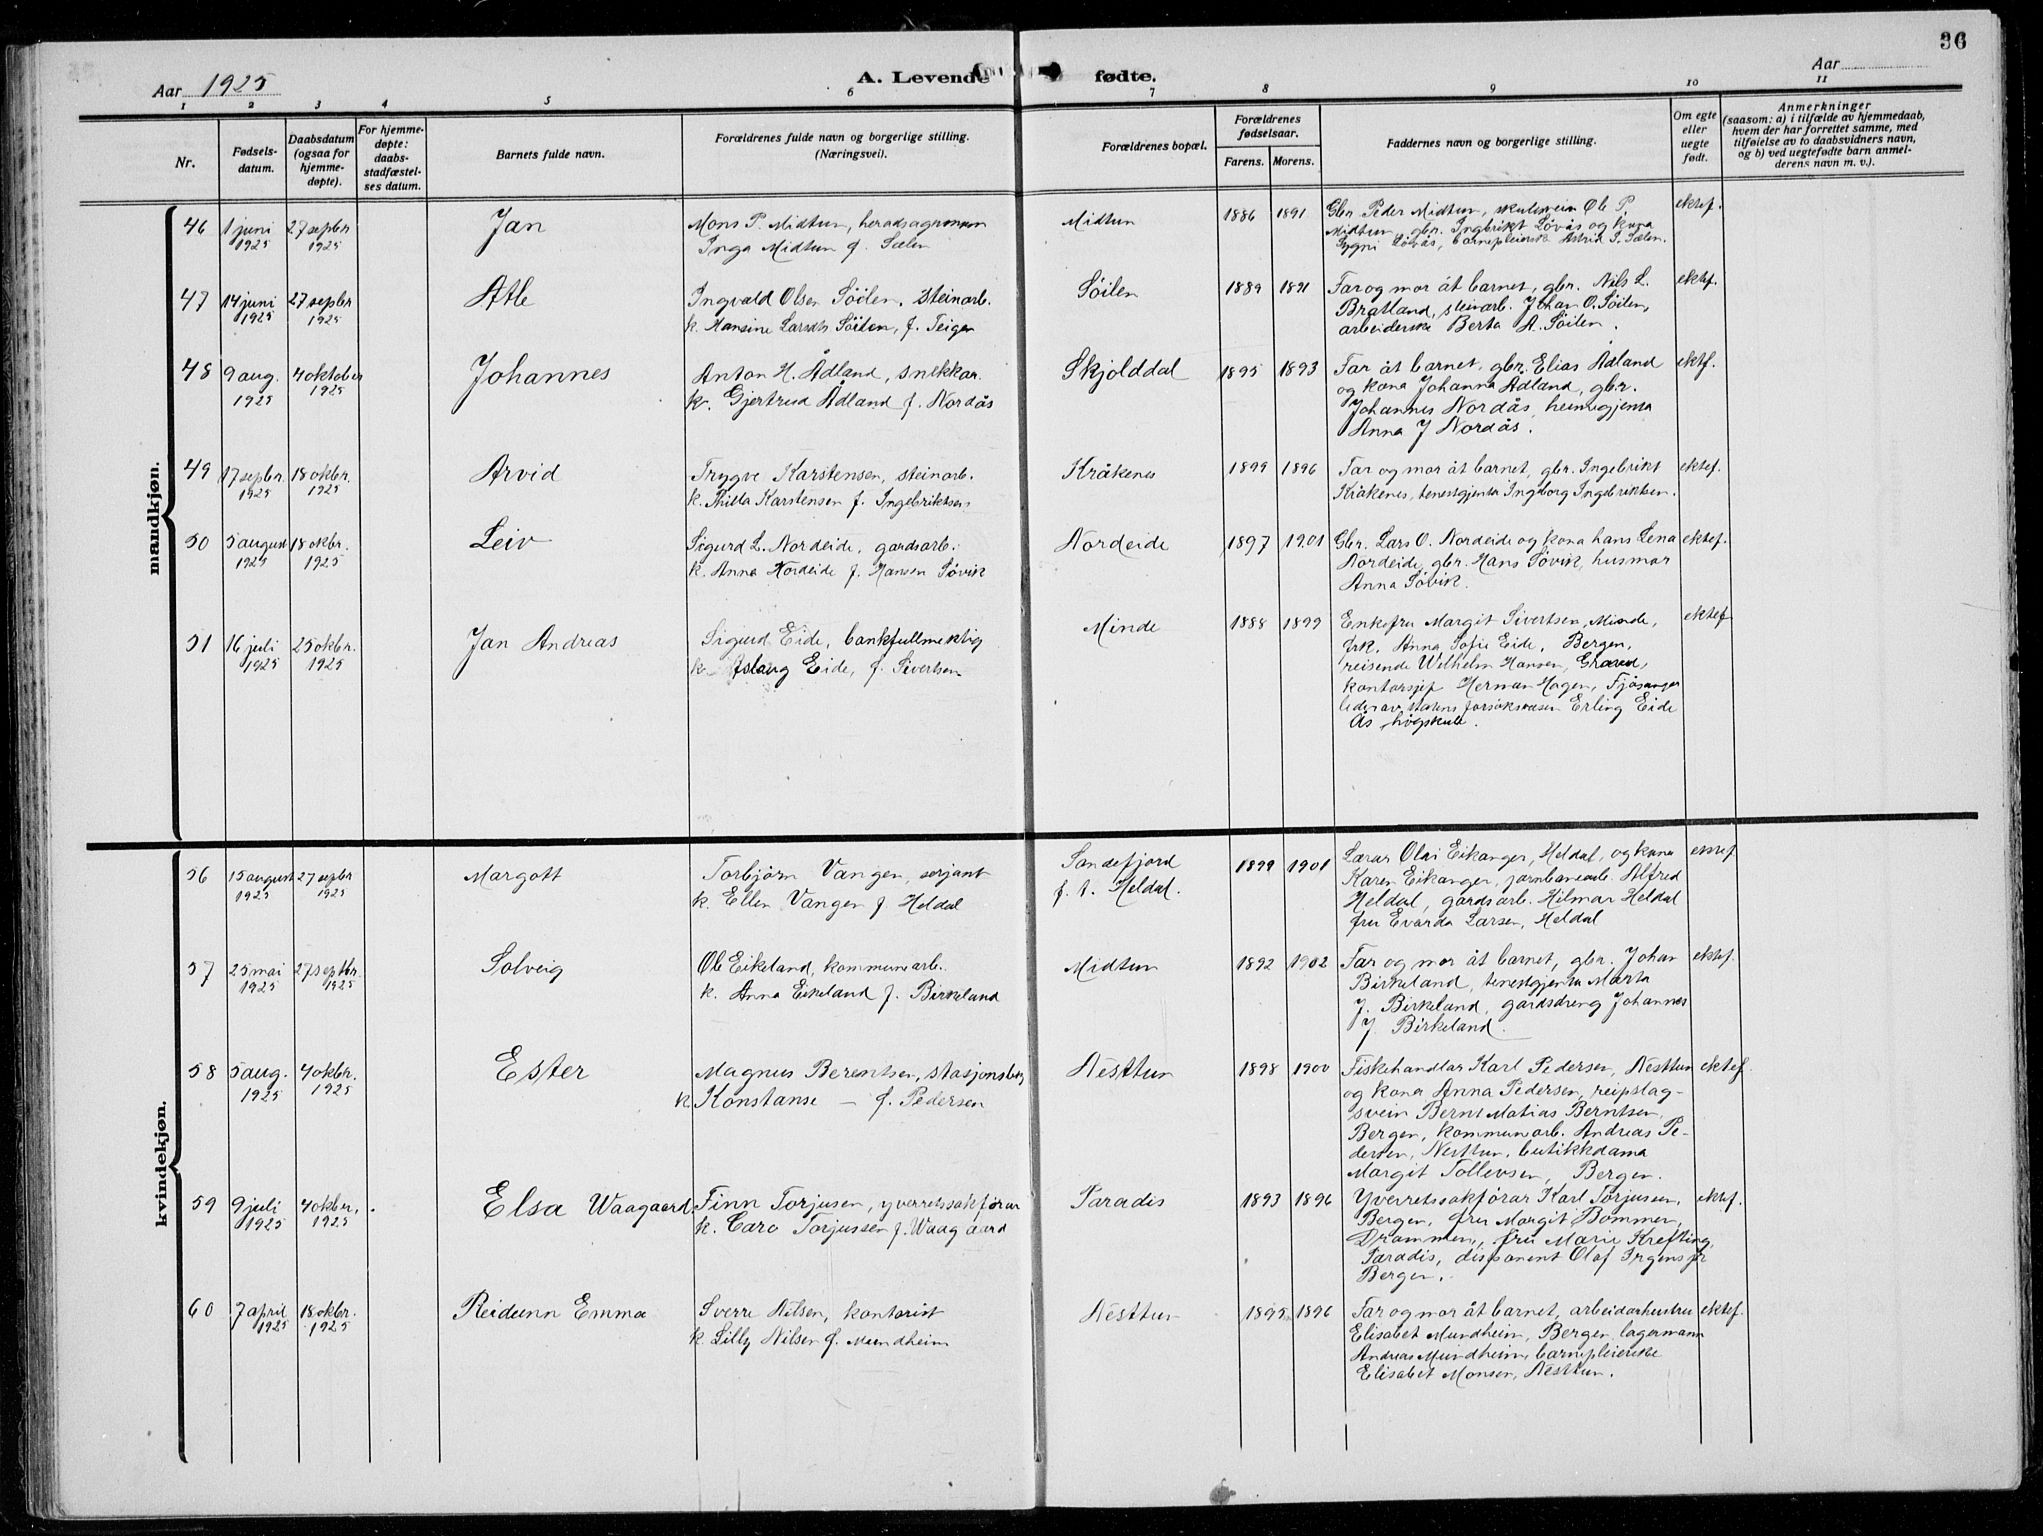 36
Aar 1925
A. Levende fødte.
Aar
1 2 3 4 5 6 7 8 9 10 11
Nr.
Fødsels-
datum.
Daabsdatum
(ogsaa for
hjemme-
døpte).
For hjemme-
døpte:
daabs-
stadfæstel-
ses datum.
Barnets fulde navn.
Forældrenes fulde navn og borgerlige stilling.
(Næringsvei).
Forældrenes bopæl.
Forældrenes
fødselsaar.
Farens. Morens.
Faddernes navn og borgerlige stilling.
Om egte
eller
uegte
født.
Anmerkninger
(saasom: a) i tilfælde av hjemmedaab,
hvem der har forrettet samme, med
tilføielse av to daabsvidners navn,
og b) ved uegtefødte barn anmel-
derens navn m. v.).
mandkjøn.
46
1 juni
1925
27 septbr
1925
Jan
Mons P. Midtun, heradsagronom
Inga Midtun f. Sælen
Midtun
1886 1891
Gbr. Peder Midtun, skulesvein Ole P.
Midtun, gbr. Ingbrikt Løvås og kona
Løvås, barnepleierske Astrid S. Sælen.
ektef.
47
14 juni
1925
27 septbr
1925
Atle
Ingvald Olsen Söilen, steinarb.
k. Hansine Larsdtr Söilen, f. Teigen
Söilen
1889 1891
Far og mor åt barnet, gbr. Nils L.
Bratland, steinarb. Johan O. Söilen,
arbeiderske Berta A. Söilen.
ektef.
48
9 aug.
1925
4 oktober
1925
Johannes
Anton H. Ådland, snekkar.
k. Gjertrud Ådland f. Nordås
Skjolddal
1895 1893
Far åt barnet, gbr. Elias Ådland
og kona Johanna Ådland, gbr.
Johannes Nordås, heimegjenta
Anna J Nordås.
ektf.
49
17 septbr.
1925
18 oktbr.
1925
Arvid
Trygve Karstensen, steinarb.
k. Thilla Karstensen f. Ingebriktsen
Kråkenes
1899 1896
Far og mor åt barnet, gbr. Ingebrikt
Kråkenes, tenestgjenta Ingborg Ingebriktsen.
ektef.
50
5 august
1925
18 oktbr.
1925
Leiv
Sigurd L. Nordeide, gardsarb.
k. Anna Nordeide f. Hansen Søvik
Nordeide
1897 1901
Gbr. Lars O. Nordeide og kona hans Lena
Nordeide, gbr. Hans Søvik, husmor
Anna Søvik.
ektef.
51
16 juli
1925
25 oktbr.
1925
Jan Andreas
Sigurd Eide, bankfullmektig
k. Aslaug Eide, f. Sivertsen
Minde
1888 1899
Enkefru Margit Sivertsen, Minde,
frk. Anna Sofie Eide, Bergen,
reisende Wilhelm Hansen,
kontorsjef Herman Hagen, Fjøsanger
leder av statens forsøksvesen Erling Eide
Ås høgskule.
ektef
kvindekjøn.
56
15 august
1925
27 septbr
1925
Margott
Torbjørn Vangen, serjant
k. Ellen Vangen f. Heldal
Sandefjord
f. t. Heldal.
1899 1901
Lærar Olai Eikanger, Heldal, og kona
Karen Eikanger, jarnbanearb. Alfred
Heldal, gardsarb. Hilmar Heldal
fru Evarda Larsen, Heldal
ektef
57
25 mai
1925
27 septbr.
1925
Solveig
Ole Eikeland, kommunearb.
k. Anna Eikeland f. Birkeland
Midtun
1892 1902
Far og mor åt barnet, gbr. Johan
Birkeland, tenestgjenta Marta
J. Birkeland, gardsdreng Johannes
J. Birkeland.
ektef.
58
5 aug.
1925
4 oktbr.
1925
Ester
Magnus Berentsen, stasjonsbetj
k. Konstanse — f. Pedersen
Nesttun
1898 1900
Fiskehandlar Karl Pedersen, Nesttun
og kona Anna Pedersen, reipslag-
svein Bernt Matias Berntsen,
Bergen, kommunearb. Andreas Pe-
dersen, Nesttun, butikkdama
Margit Tollevsen, Bergen.
ektef.
59
9 juli
1925
4 oktbr.
1925
Elsa Waagaard
Finn Torjusen, yverrettssakførar
k. Caro Torjussen f. Waagaard
Paradis
1893 1896
Yverrettssakførar Karl Torjusen,
Bergen, fru Margit Bommen,
Drammen, fru Marie Krefting,
Paradis, disponent Olaf Irgens jr
Bergen.
ektef.
60
7 april
1925
18 oktbr.
1925
Reidunn Emma
Sverre Nilsen, kontorist
k. Lilly Nilsen f. Mundheim
Nesttun
1895 1896
Far og mor åt barnet, arbeidarhustru
Elisabet Mundheim, Bergen, lagermann
Andreas Mundheim, barnepleierske
Elisabet Monsen, Nesttun.
ektef.